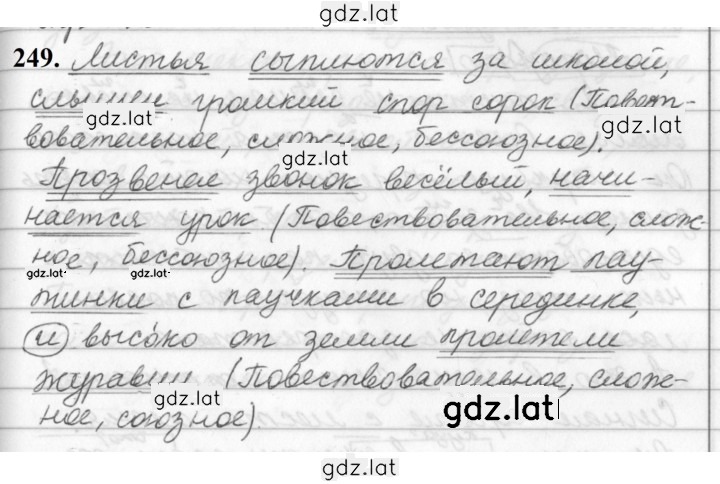 gdz.lat
249. Листья сыплются за школой,
слышен громкий спор сорок (Повест-
gdz.lat
gdz.lat
вовательное, сложное, бессоюзное).
gdz.lat
Прозвенел звонок весёлый, начи-
нается урок (Повествовательное, слож-
ное, бессоюзное). Пролетают пау-
gdz.lat gdz.lat
тинки с паучками в серединке,
и высо́ко от земли пролетели
журавли (Повествовательное, слож-
gdz.lat
ное, союзное)
gdz.lat
gdz.lat